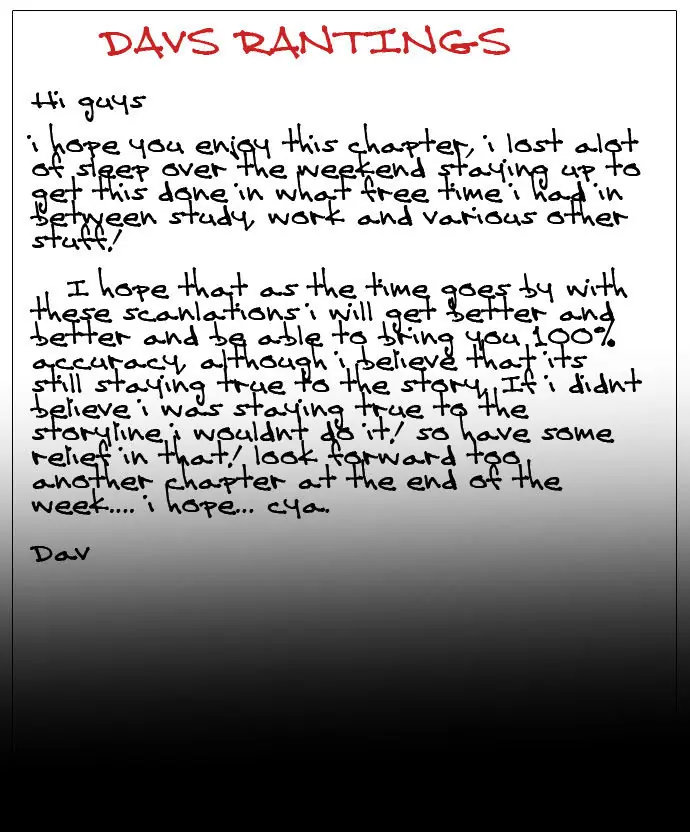 DAVS RANTINGS
Hi guys
i hope you enjoy this chapter, i lost alot
of sleep over the weekend staying up to
get this done in what free time i had in
between study, work and various other
stuff!
I hope that as the time goes by with
these scanlations i will get better and
better and be able to bring you 100%
accuracy, although i believe that its
still staying true to the story, If i didnt
believe i was staying true to the
storyline i wouldnt do it! so have some
relief in that! look forward too
another chapter at the end of the
week.... i hope... cya.
Dav